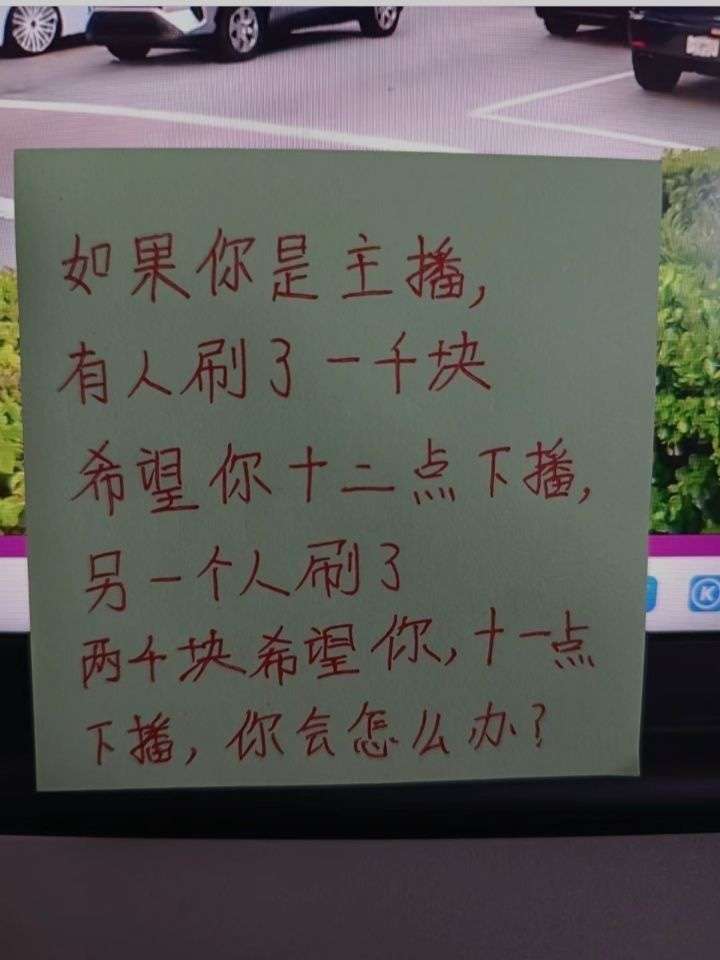 如果你是主播,
有人刷了一千块
希望你十二点下播,
另一个人刷了
两千块希望你,十一点
下播,你会怎么办?
K